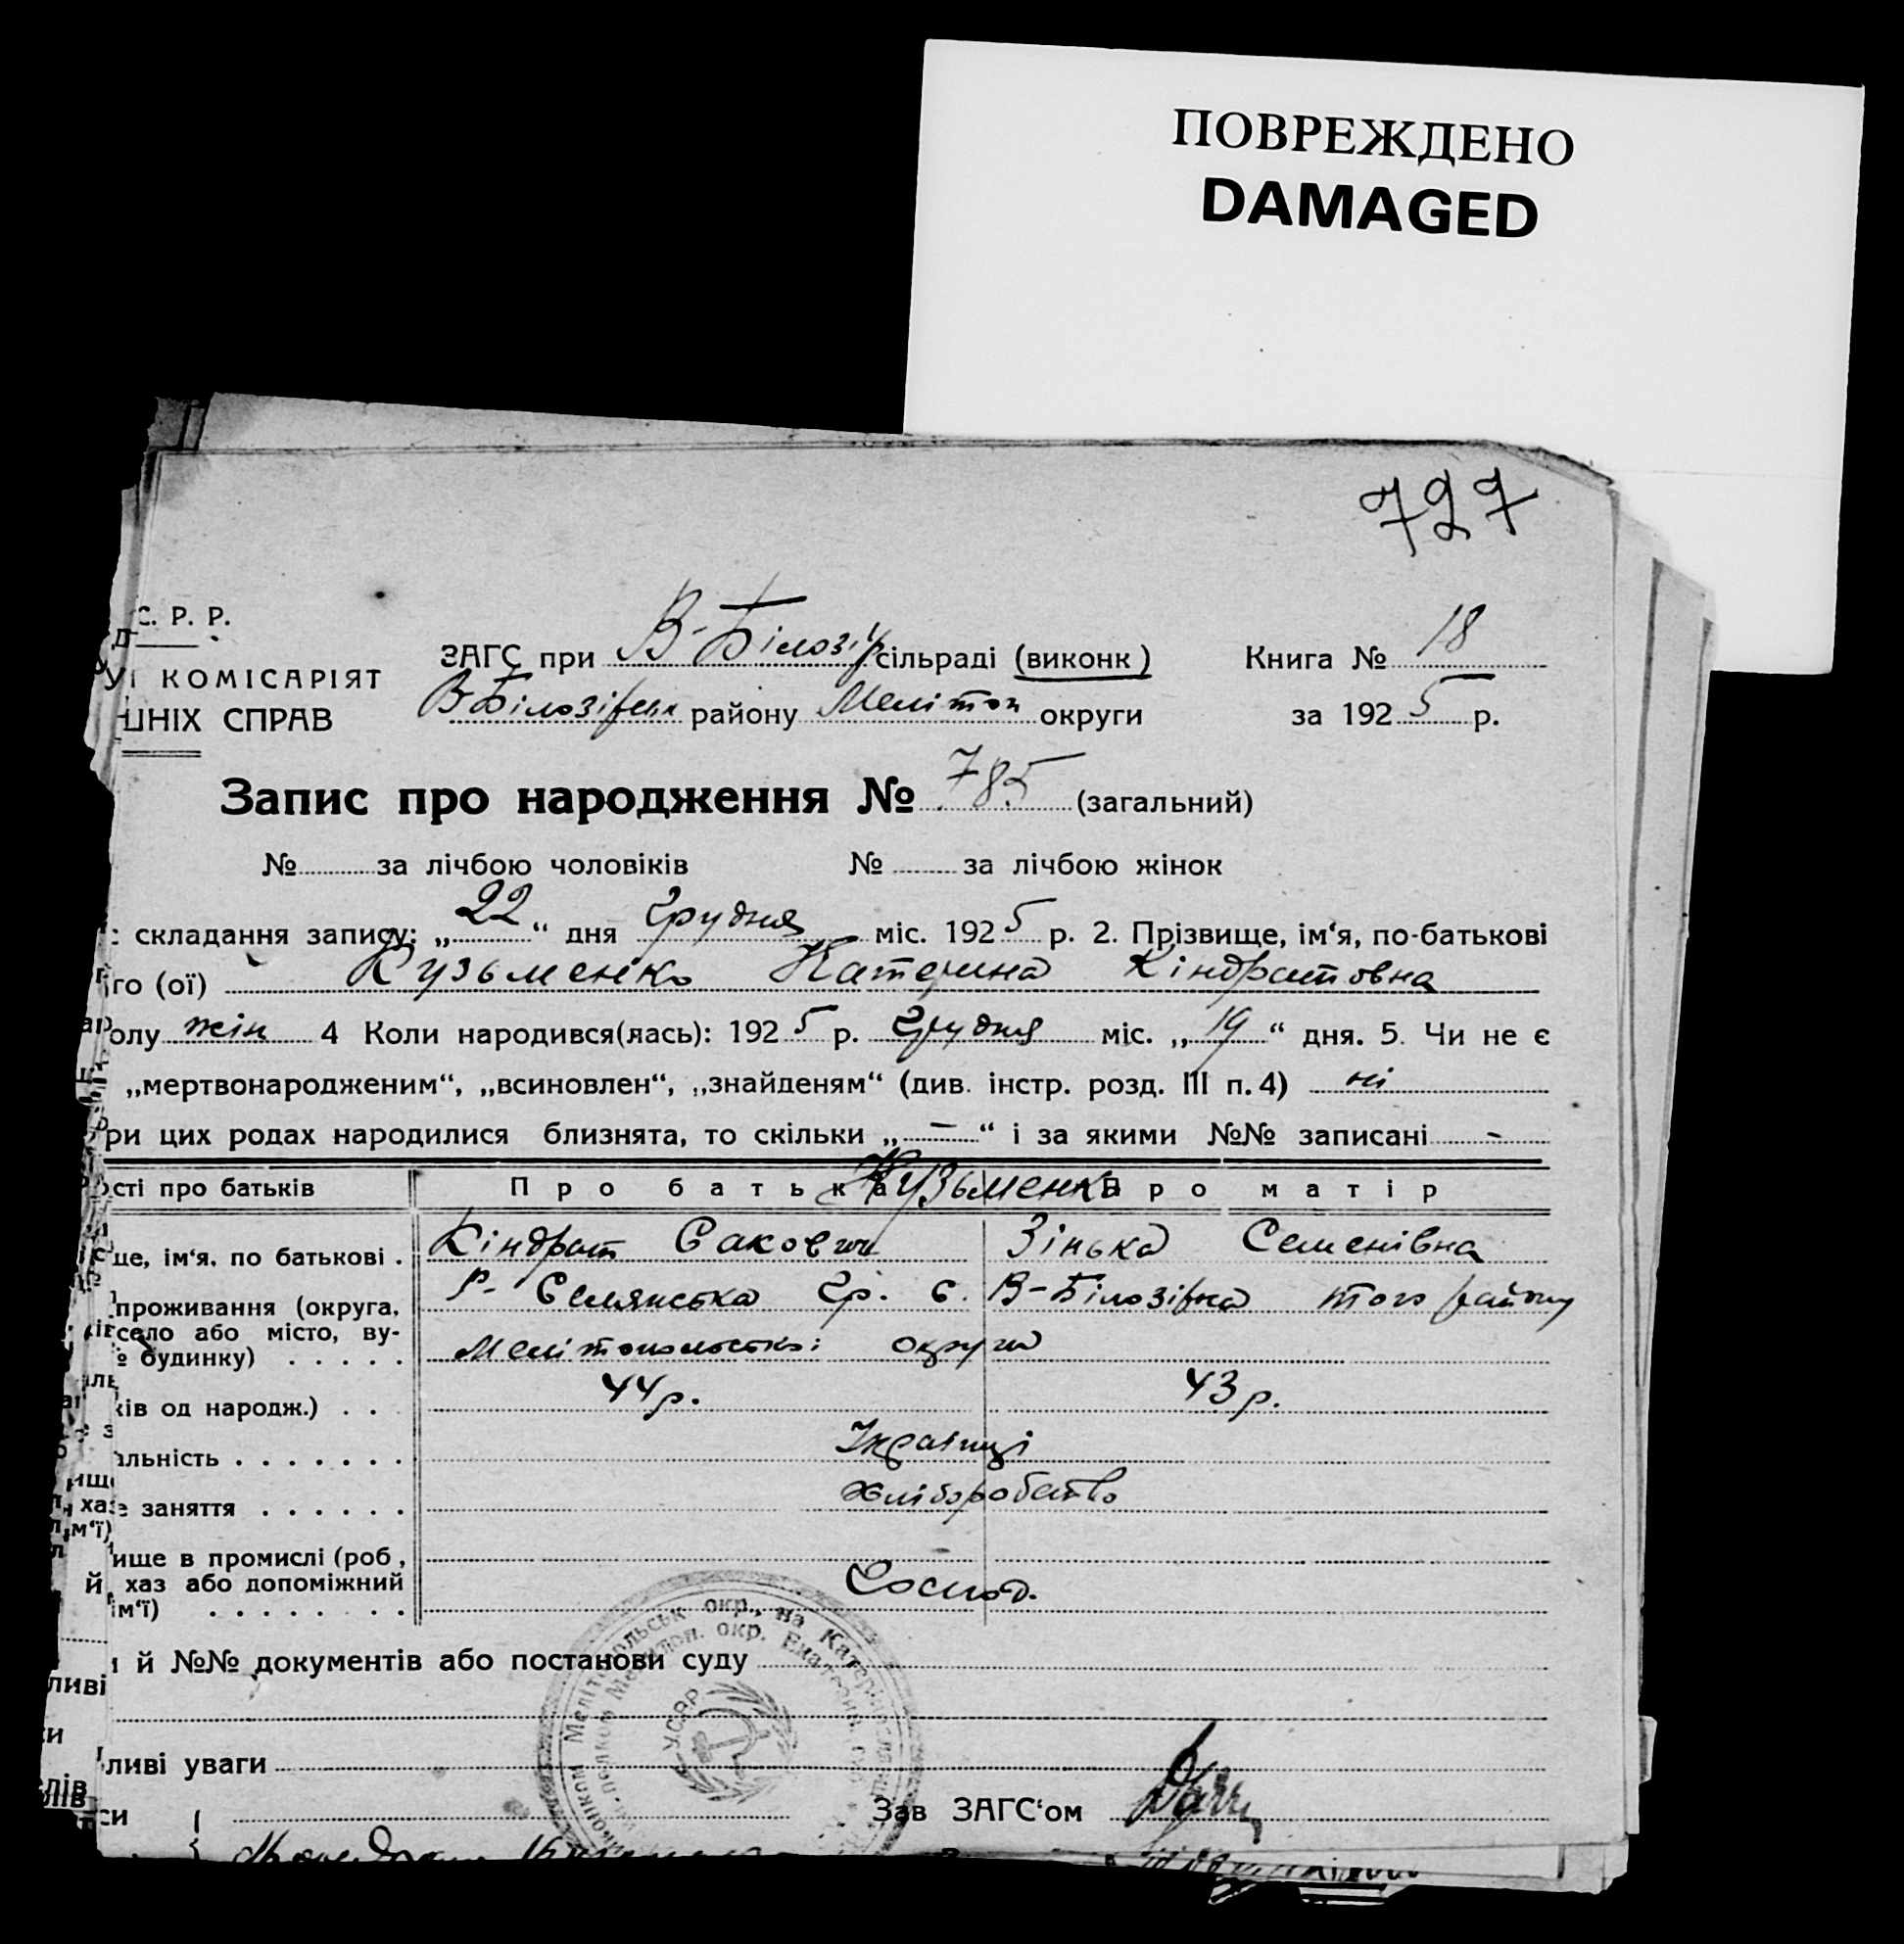 ПОВРЕЖДЕНО
DAMAGED
727
С. Р. Р.
КОМІСАРІЯТ
ШНІХ СПРАВ
ЗАГС при В-Білозір сільраді (виконк)
В-Білозірськ району Мелітоп округи
Книга № 18
за 1925 р.
Запис про народження № 785 (загальний)
№ за лічбою чоловіків № за лічбою жінок
складання запису: „22“ дня Грудня міс. 1925 р. 2. Прізвище, ім‘я, по-батькові
го (ої) Кузьменко Катерина Кіндратовна
олу жін 4 Коли народився(лась): 1925 р. Грудня міс. „19“ дня. 5. Чи не є
„мертвонародженим“, „всиновлен“, „знайденям“ (див. інстр. розд. III п. 4) ні
ри цих родах народилися близнята, то скільки „—“ і за якими №№ записані -
сті про батьків Про батька Про матір
Кузьменко
ще, ім‘я, по батькові . Кіндрат Сакович Зінька Семенівна
проживання (округа, Р- Селянська Гр. с. В-Білозірка того району
село або місто, ву-
будинку) . . . . . Мелітопольської округи
ків од народж.) . . 44 р. 43 р.
альність . . . . . . . Українці
заняття . . . . . . Хліборобство
ище в промислі (роб,
й, хаз або допоміжний Господ.
ім‘ї) . . . . . . . .
й №№ документів або постанови суду
У.С.Р.Р.
ливі уваги
си
Зав ЗАГС‘ом